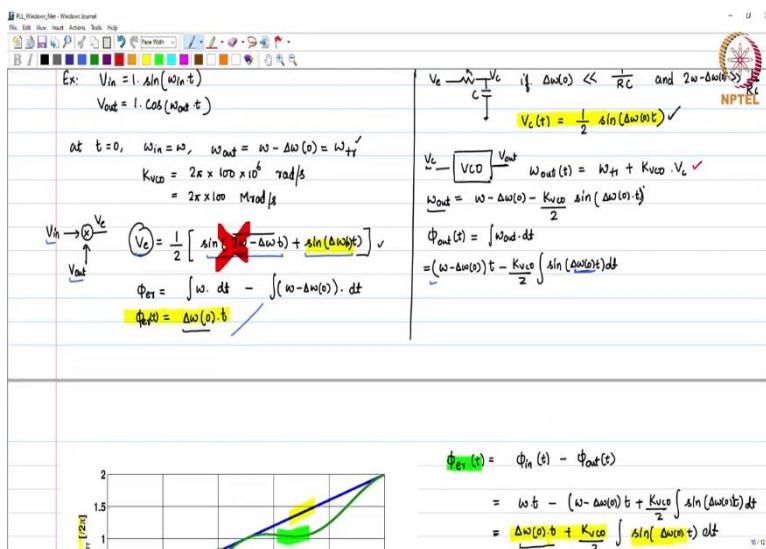 PLL_Windows_files - Windows Journal
File Edit View Insert Actions Tools Help
Page Width
B I
NPTEL
Ex: Vin = 1. sin(ωin t)
Vout = 1. cos(ωout.t)
at t=0, ωin = ω, ωout = ω - Δω(0) = ωfr
KVCO = 2π × 100 × 10⁶ rad/s
= 2π × 100 Mrad/s
Vin → ⊗ Ve
Vout
Ve = 1/2 [ sin( 2ω - Δω t) + sin(Δω t) ] ✓
ϕer = ∫ω. dt - ∫(ω - Δω(0)). dt
ϕer(t) = Δω(0).t
Ve Vc if Δω(0) << 1/RC and 2ω - Δω(0) >> 1/RC
C
Vc(t) = 1/2 sin(Δω(0)t) ✓
Vc VCO Vout ωout(t) = ωfr + KVCO . Vc ✓
ωout = ω - Δω(0) - KVCO/2 sin(Δω(0).t)
ϕout(t) = ∫ωout.dt
= (ω-Δω(0))t - KVCO/2 ∫ sin(Δω(0)t)dt
ϕer(t) = ϕin(t) - ϕout(t)
= ω.t - (ω - Δω(0))t + KVCO/2 ∫ sin(Δω(0)t)dt
= Δω(0).t + KVCO/2 ∫ sin(Δω(0)t) dt
2
1.5
1
[/2π]
10/12